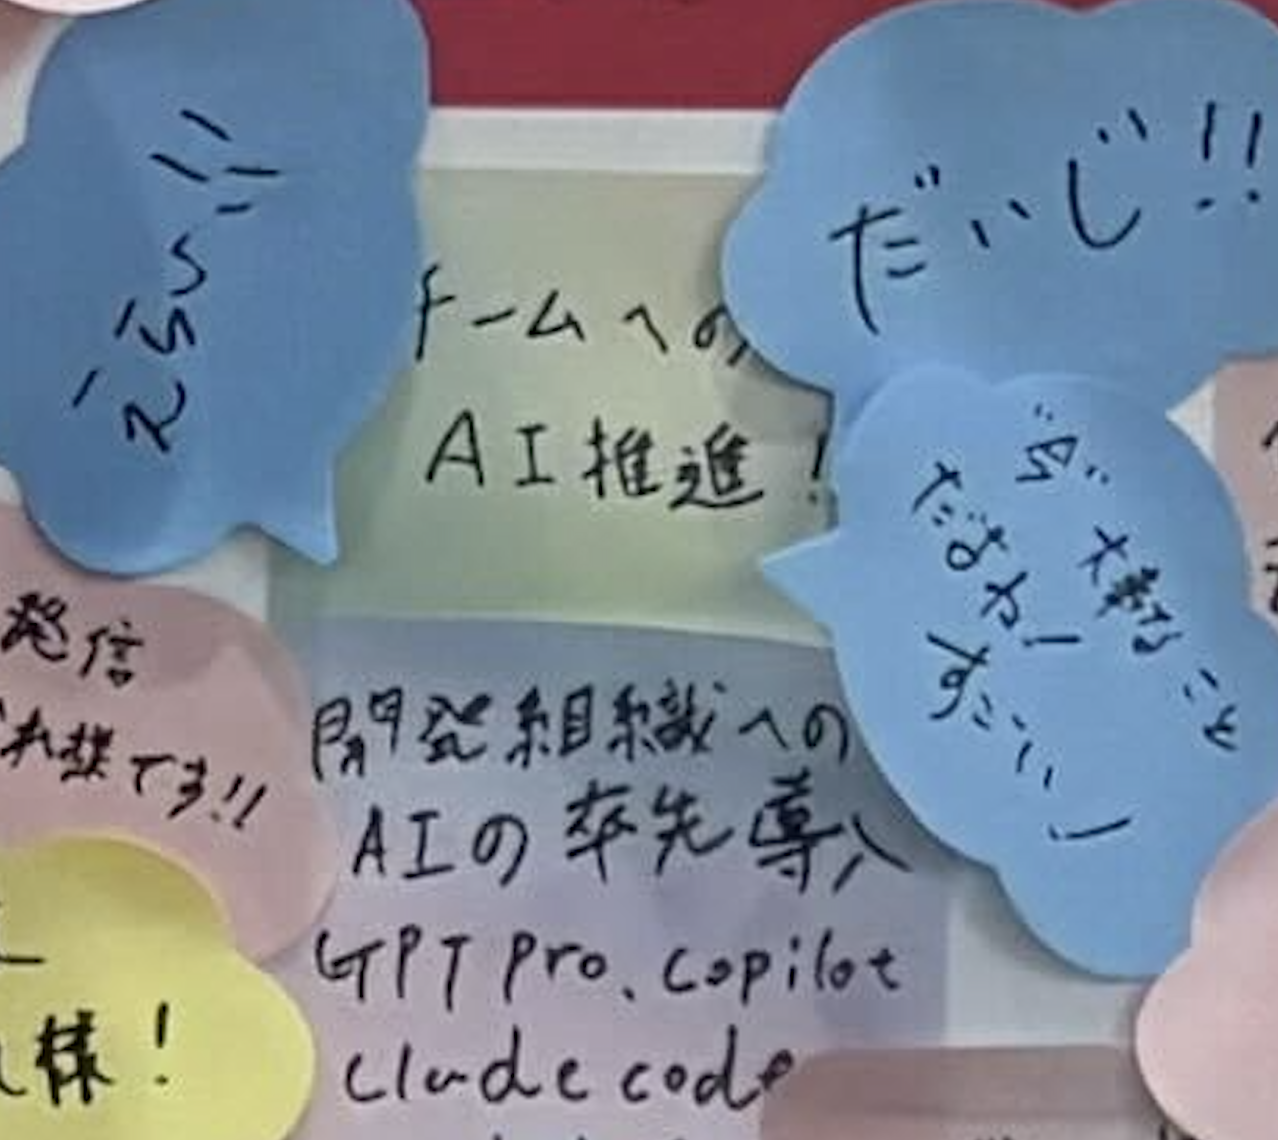 えらい!!
だいじ!!
チームへの
AI推進!
大事なこと
だよねー
すごいー
発信
れ様です!!
開発組織への
AIの率先導入
GPT Pro、Copilot
Clude code
様!